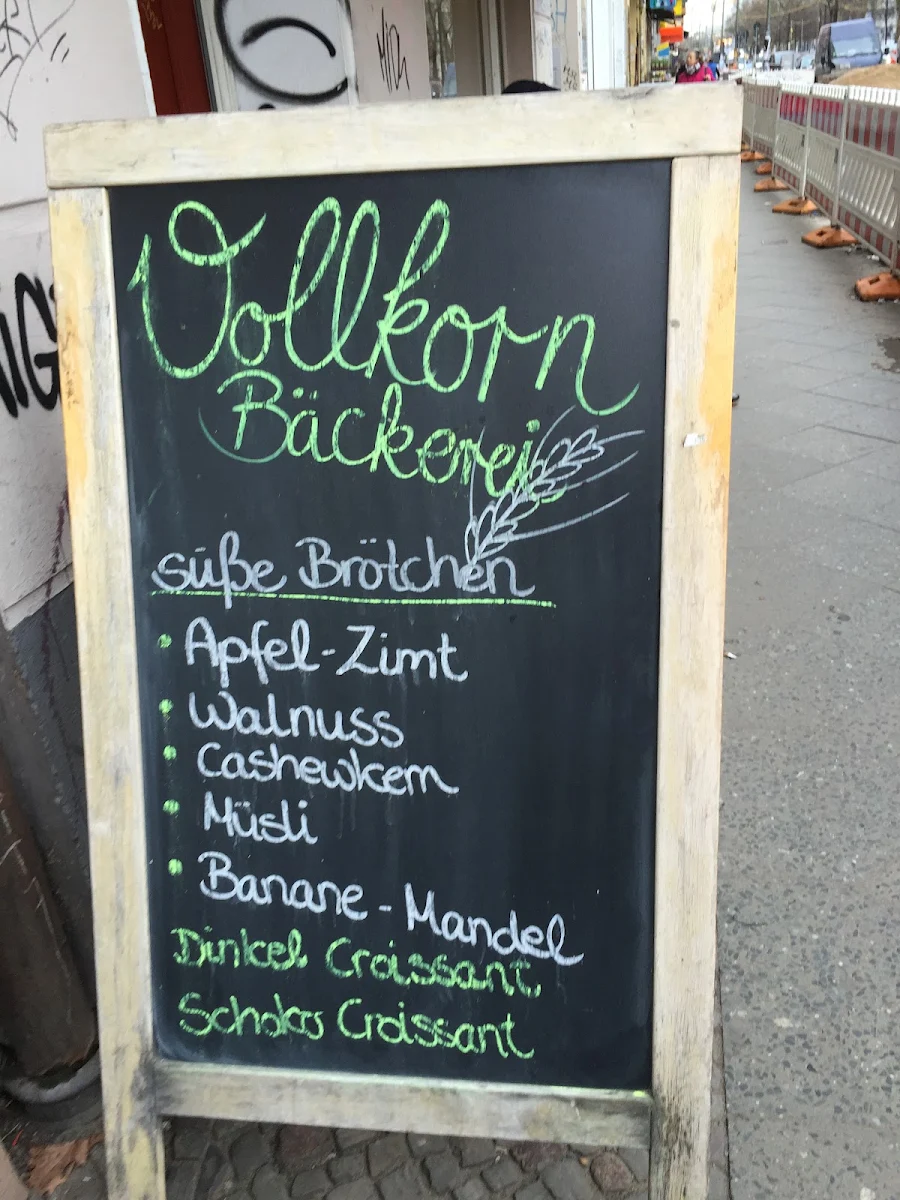 Vollkorn
Bäckerei
süße Brötchen
Apfel-Zimt
Walnuss
Cashewkern
Müsli
Banane-Mandel
Dinkel Croissant
Schoko Croissant